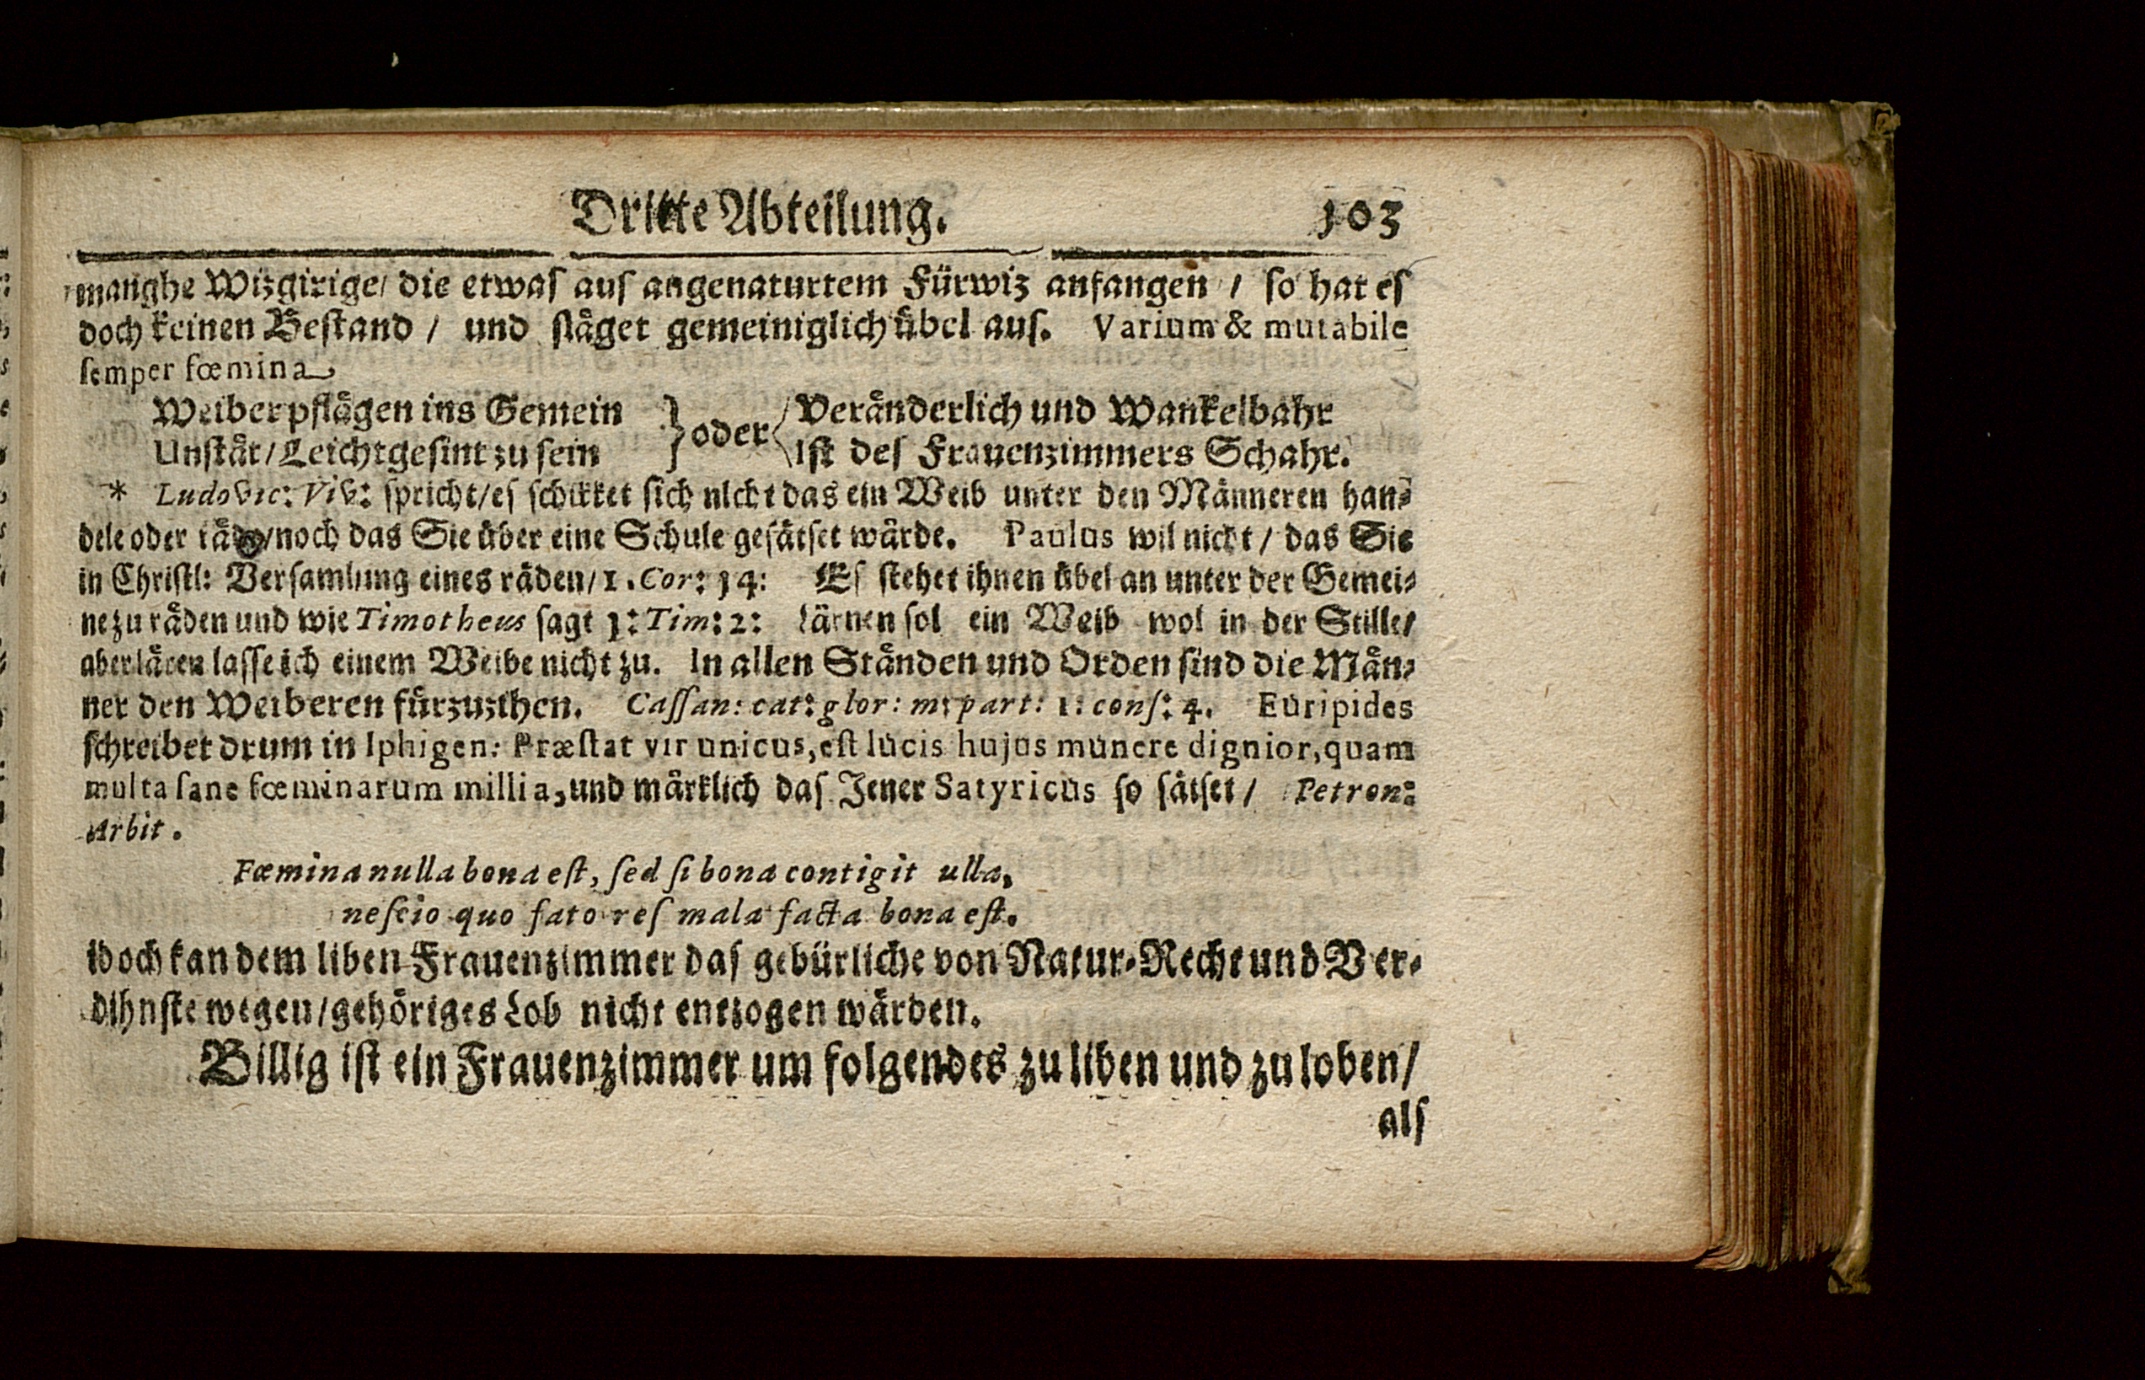 Dritte Abteilung. 103
manghe Wizgirige/ die etwas aus angenaturtem Fürwiz anfangen / so hat es
doch keinen Bestand / und släget gemeiniglich übel aus. Varium & mutabile
semper fœmina
Weiber pflägen ins Gemein } oder { Veränderlich und Wankelbahr
Unstät/ Leichtgesint zu sein } oder { ist des Frauenzimmers Schahr.
* Ludovic: Viv: spricht/es schikket sich nicht das ein Weib unter den Männeren han-
dele oder räde/noch das Sie über eine Schule gesätset wärde. Paulus wil nicht / das Sie
in Christl: Versamlung eines räden/1. Cor: 14: Es stehet ihnen übel an unter der Gemei-
ne zu räden und wie Timotheus sagt 1: Tim: 2: lärnen sol ein Weib wol in der Stille/
aber lären lasse ich einem Weibe nicht zu. In allen Ständen und Orden sind die Män-
ner den Weiberen fürzuzihen. Cassan: cat: glor: m: part: 1: cons: 4. Euripides
schreibet drum in Iphigen: Præstat vir unicus, est lucis hujus munere dignior, quam
multa sane fœminarum millia, und märklich das Jener Satyricus so sätset / Petron:
Arbit.
Fœmina nulla bona est, sed si bona contigit ulla,
nescio quo fato res mala facta bona est.
idoch kan dem liben Frauenzimmer das gebürliche von Natur-Recht und Ver-
dihnste wegen/gehöriges Lob nicht entzogen wärden.
Billig ist ein Frauenzimmer um folgendes zu liben und zu loben/
als